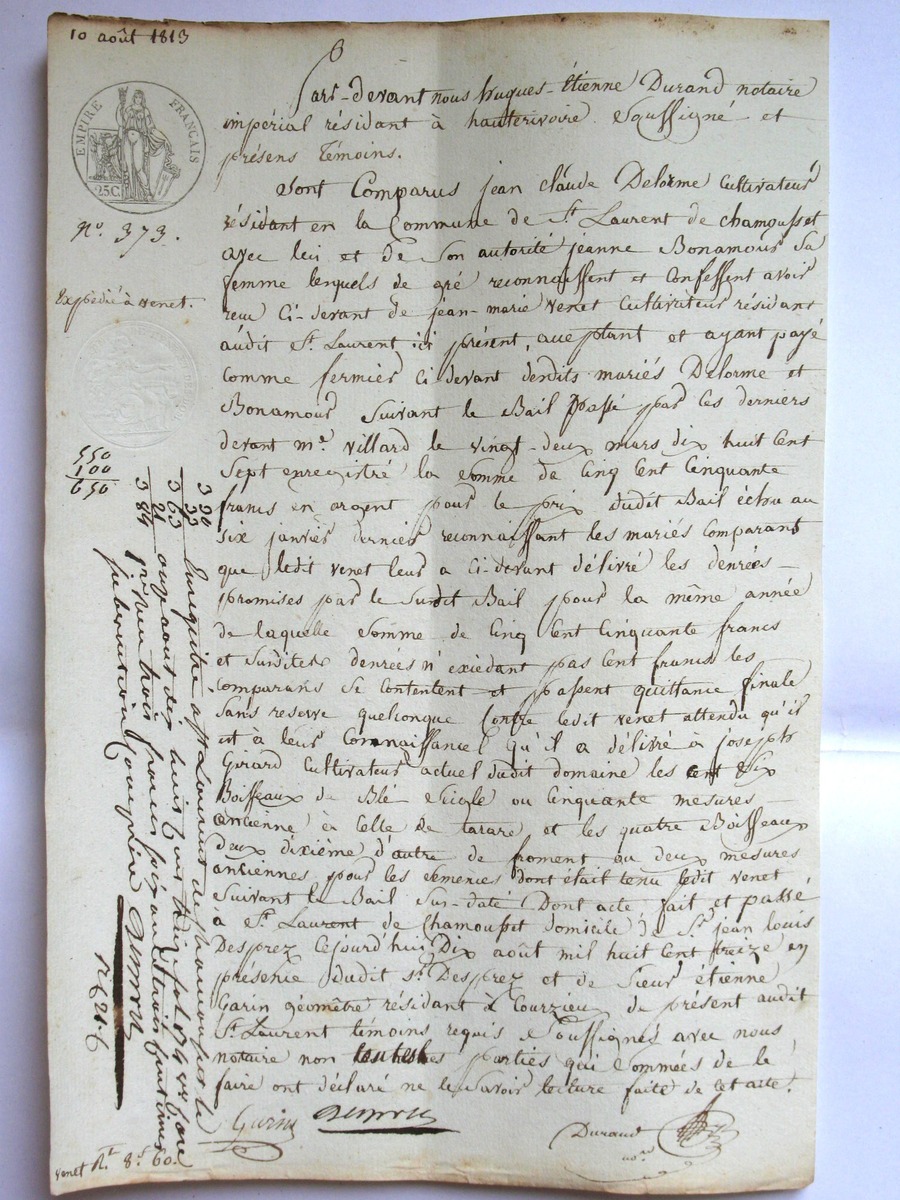 10 août 1813
EMPIRE FRANÇAIS
25C
N°. 373.
Expédié à venet.
550
100
650
Pard-devant nous hugues-Étienne Durand notaire
impérial résidant à hauterivoire Soussigné et
présens témoins.
Sont Comparus jean claude Delorme Cultivateur
résidant en la Commune de St. Laurent de chamousset
avec lui et de Son autorité jeanne Bonamour Sa
femme lesquels de gré reconnaissent et Confessent avoir
reçu Ci-devant de jean-marie venet Cultivateur résidant
audit St. Laurent ici présent, acceptant et ayant payé
comme fermier Ci devant desdits mariés Delorme et
Bonamour Suivant le Bail passé par Ces derniers
devant me. villard le vingt-deux mars dix huit Cent
Sept enregistré la Somme de Cinq Cent Cinquante
francs en argent pour le prix dudit Bail échu au
six janvier dernier reconnaissant les mariés Comparant
que ledit venet leur a Ci-devant délivré les denrées
promises par le Susdit Bail pour la même année
de laquelle Somme de Cinq Cent Cinquante francs
et Susdites denrées n'exédant pas Cent francs les
Comparans Se Contentent et passent quittance finale
Sans reserve quelconque Contre ledit venet attendu qu'il
est à leur Connaissance qu'il a délivré à joseph
Girard Cultivateur actuel dudit domaine les Six
Boisseaux de Blé Seigle ou Cinquante mesures
ancienne à Celle de tarare et les quatre Boisseaux
deux dixième d'autre de froment ou deux mesures
anciennes pour les Semences dont était tenu ledit venet
Suivant le Bail Sur-daté Dont acte fait et passé
à St. Laurent de Chamousset domicile de Sr jean louis
Desprez Cejourd'hui Dix août mil huit Cent treize en
présence dudit Sr. Desprez et de Sieur étienne
Garin géomètre résidant à Courzieu de présent audit
St. Laurent témoins requis Soussignés avec nous
notaire non les parties qui Sommées de le
faire ont déclaré ne le Savoir lecture faite de Cet acte.
Garin
Durand
nore
3 30
33
3 63
21
3 84
Enregistré à St Laurent de chamousset le
onze août dix huit cent treize
reçu trois francs
venet Rt. 8f. 60.